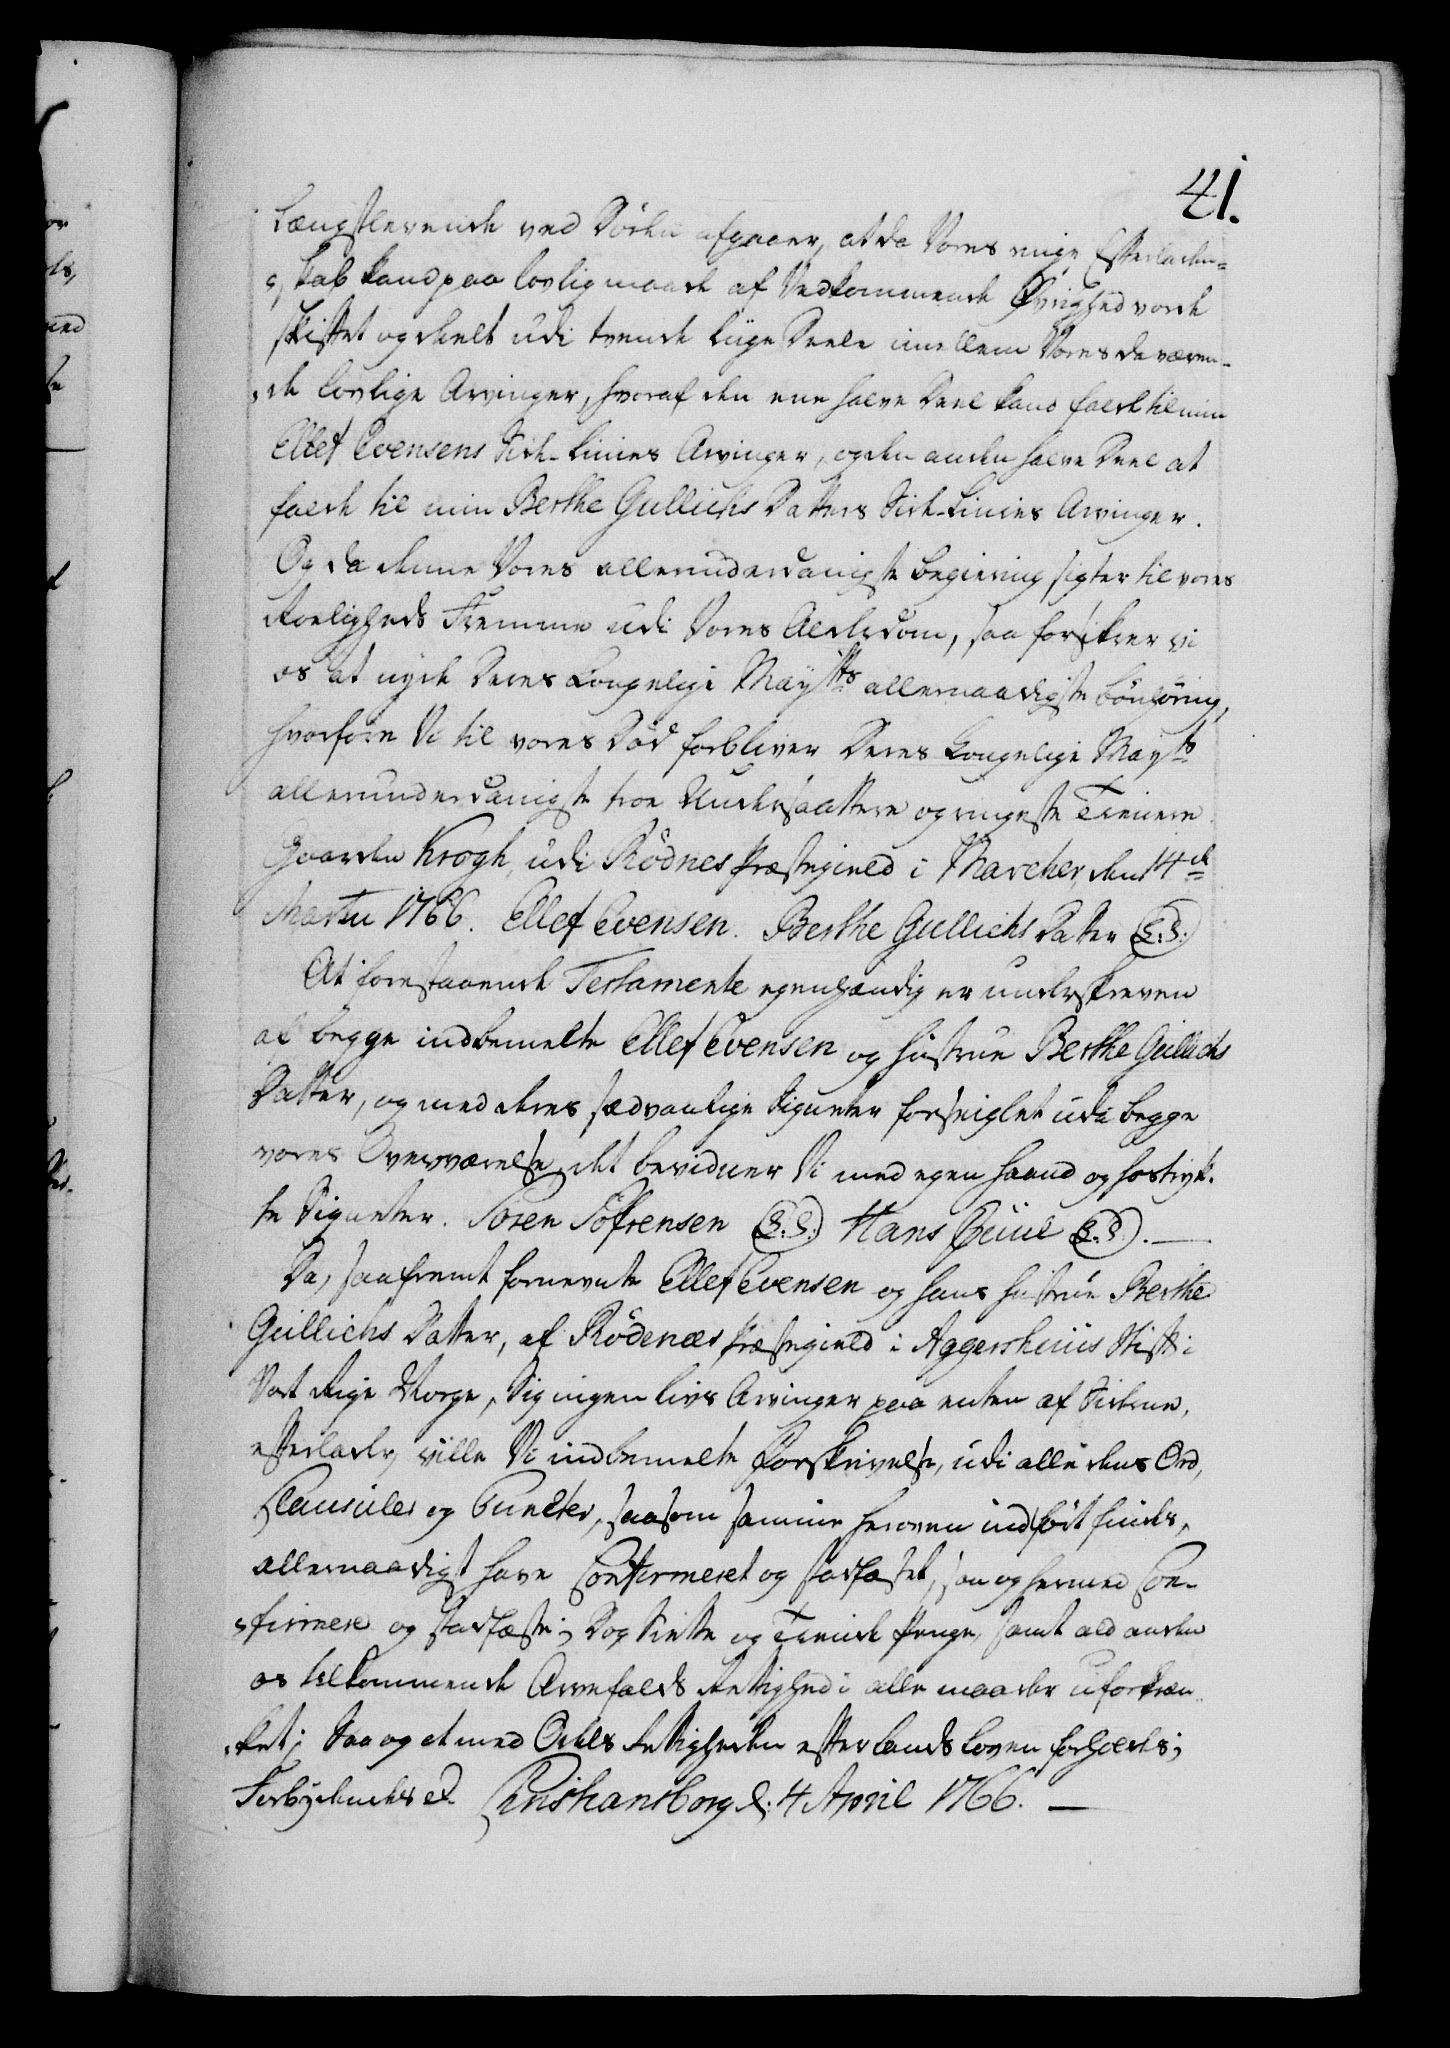 41.
Længstlevende ved Döden afgaaer, at da Vores ringe Efterladen=
=skab kand paa lovlig maade af Vedkommende Øvrighed vorde
skiftet og deelt udi tvende liige Deele imellem Vores da væren-
de lovlige Arvinger, hvoraf den ene halve Deel kand falde til min
Ellef Evensens Side-Linies Arvinger, og den anden halve Deel at
falde til min Berthe Gullichs Datters Side-Linies Arvinger.
Og da denne Vores allerunderdanigste begiering sigter til vores
Roeligheds Fremme udi Vores Alderdom, saa forsikrer vi
os at nyde Deres Kongelige Mayts allernaadigste bönhöring,
hvorfore Vi til vores Död forbliver Deres Kongelige Mayts
allerunderdanigste troe Undersaattere og ringeste Tienere
Gaarden Krogh, udi Rödnes Præstegield i Marcher, den 14de
Martii 1766. Ellef Evensen. Berthe Gullichs Datter (L.S.)
At forestaaende Testamente egenhændig er underskreven
af begge indbemelte Ellef Evensen og hustrue Berthe Gullichs
Datter, og med deres sædvanlige Signeter forseiglet udi begge
vores Overværelse, det bevidner Vi med egen haand og hostryk-
te Signeter. Sören Söfrensen (L.S.) Hans Juul (L.S.).
Da, saafremt fornevnte Ellef Evensen og hans hustrue Berthe
Gullichs Datter, af Rödenæs Præstegield i Aggershuus Stift i
Vort Rige Norge, Sig ingen livs Arvinger paa enten af Siderne,
efterlader, ville Vi indbemelte Forskrivelse, udi alle dens Ord,
Clausuler og Puncter, saasom samme heroven indfört findes,
allernaadigst have Confirmeret og stadfæstet, saa og hermed Con-
=firmere og stadfæste; Dog Siette og Tiende Penge, samt ald anden
os tilkommende Arvefalds Rettighed i alle maader uforkræn-
ket; Saa og at med Odels Rettigheden efter Lands Loven forholdes;
Forbydendes etc. Christiansborg d: 4 April 1766.